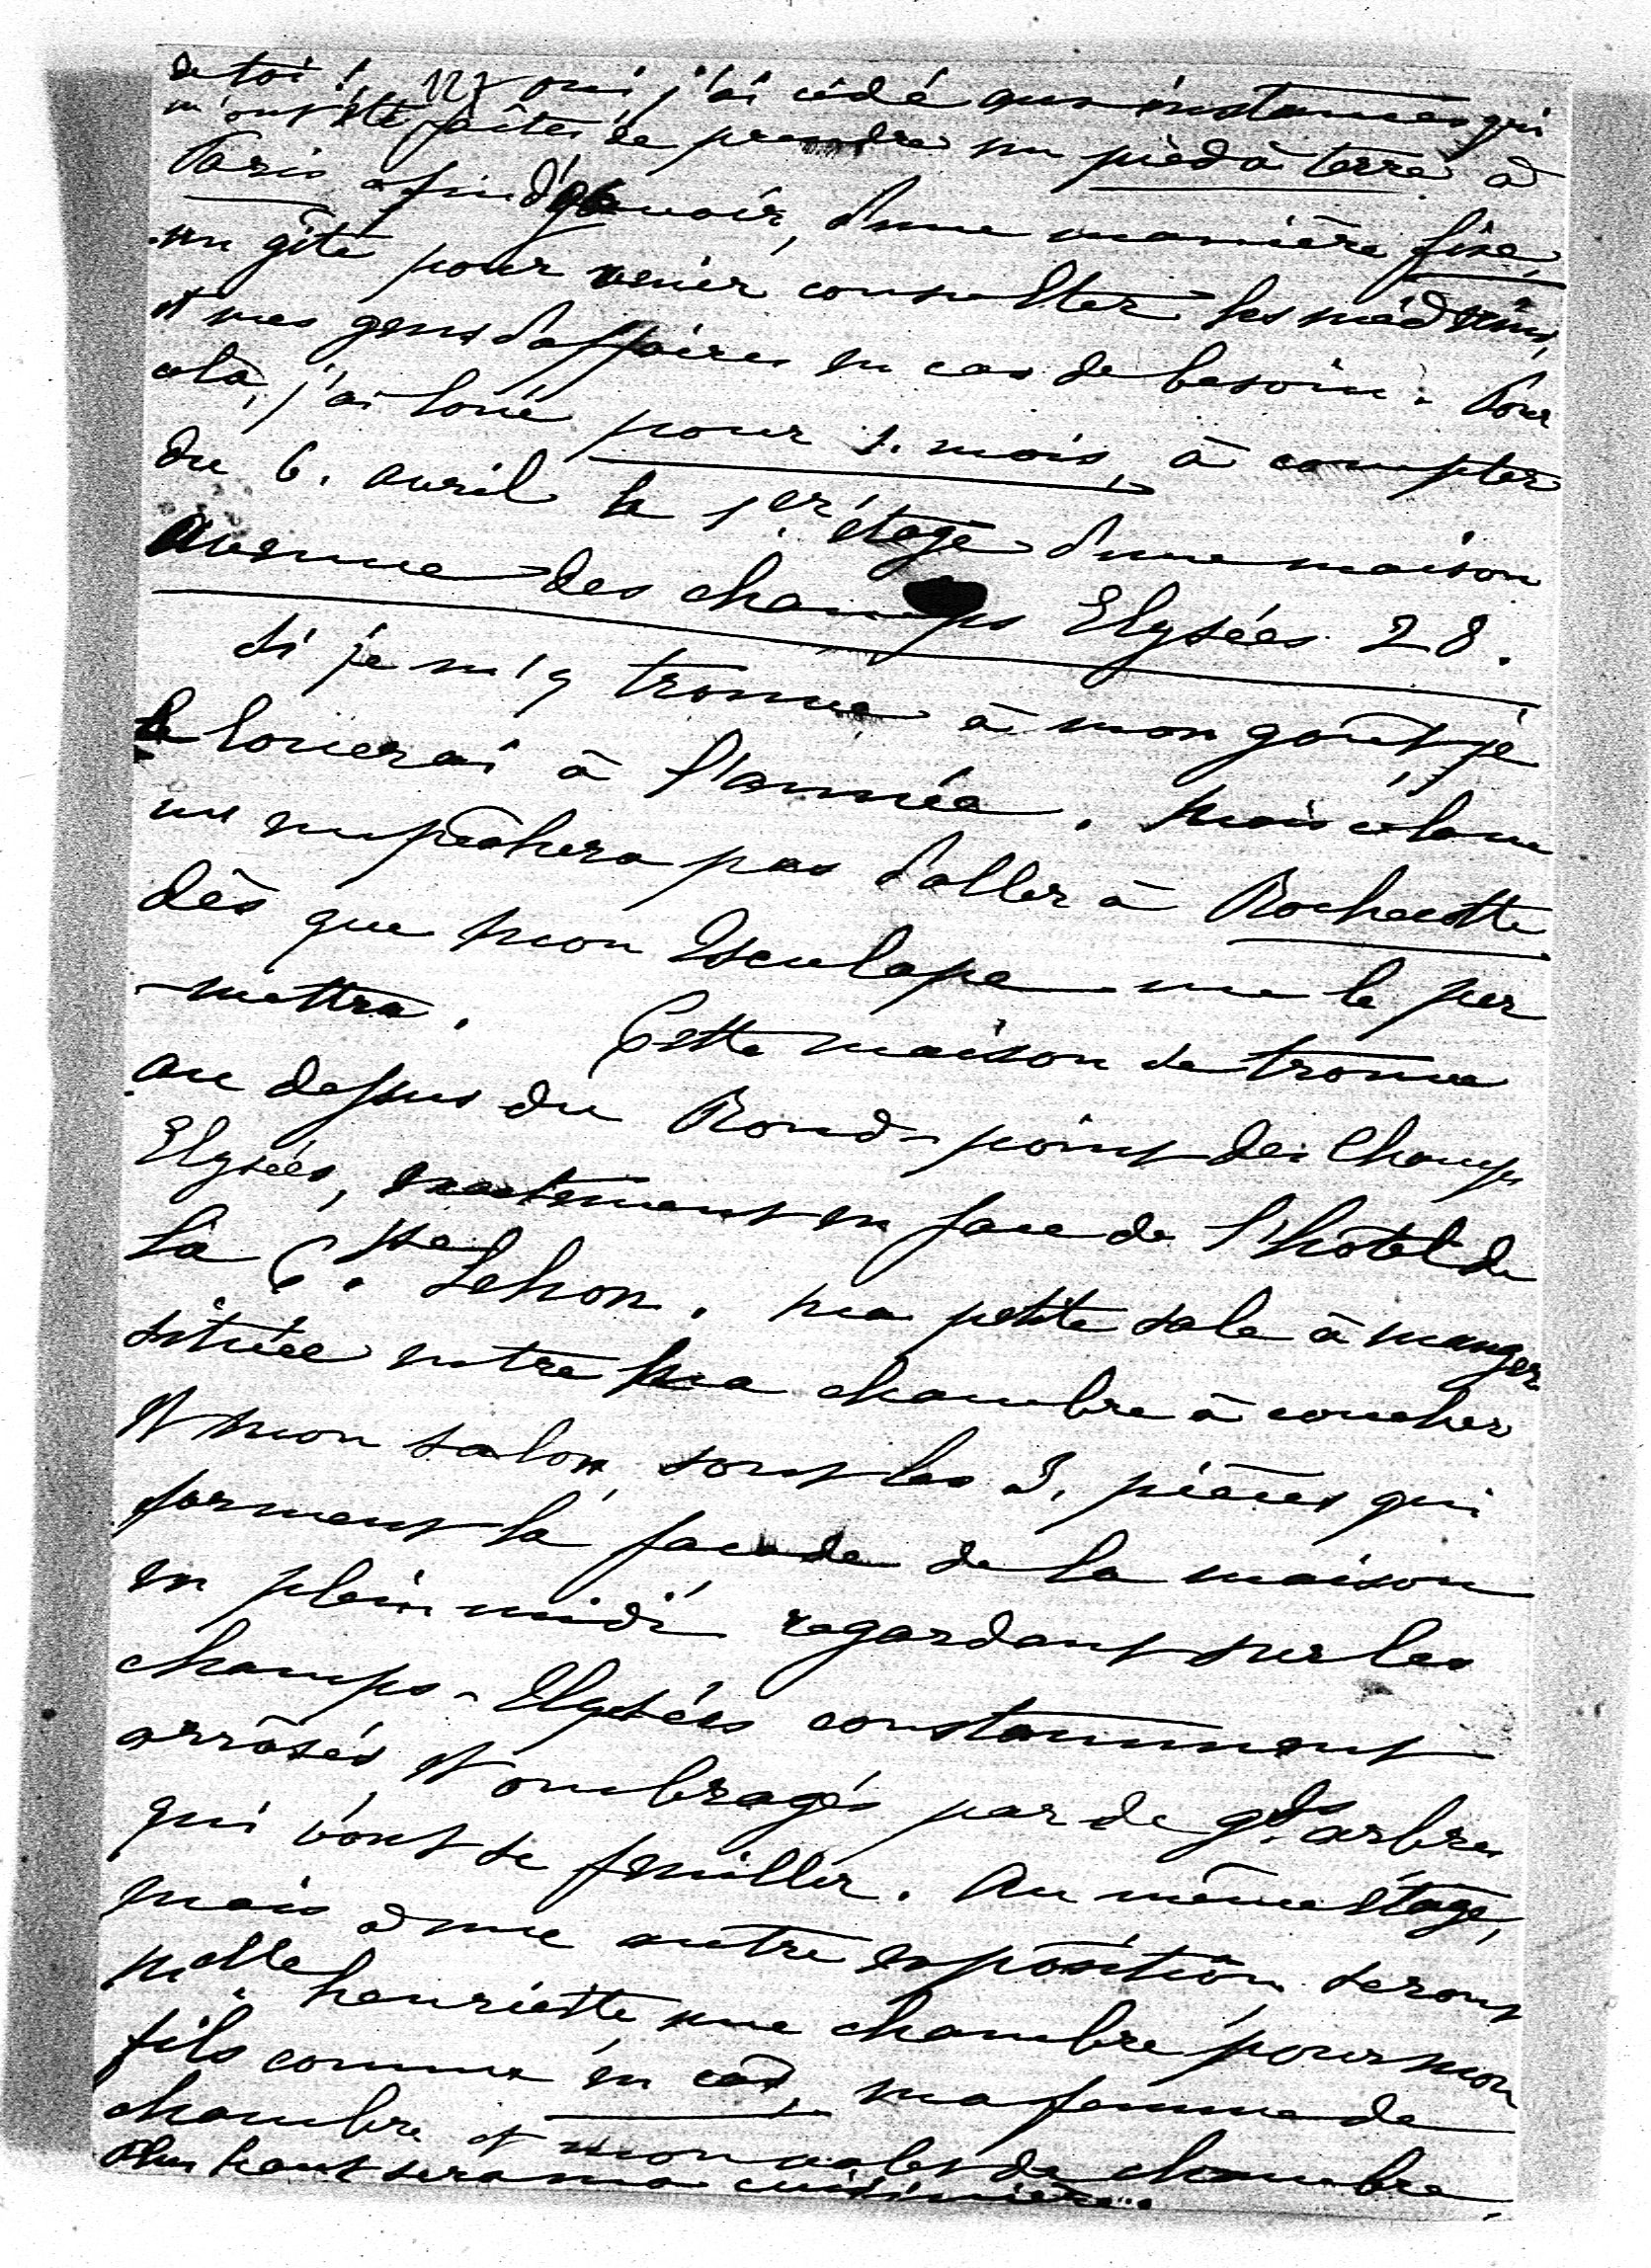 de toi! 12) oui, j'ai cédé aux instances qui
m'ont été faîtes de prendre un pièd à terre à
Paris afin d'y avoir, d'une manière fixe,
un gîte pour venir consulter les médecins,
et mes gens d'affaires en cas de besoin. Pour
cela, j'ai loué pour 1. mois, à compter
du 6. avril le 1er étage d'une maison
Avenue des champs Elysées 28.
Si je m'y trouve à mon goût, je
le louerai à l'année. Mais cela ne
m'empêchera pas d'aller à Rochecotte
dès que mon Esculape me le per
-mettra. Cette maison se trouve
au dessus du Rond-point des Champs
Elysées, exactement en face de l'hôtel de
la Ctsse Lehon. Ma petite sale à manger
située entre ma chambre à coucher
et mon salon, sont les 3. pièces qui
forment la facade de la maison
en plein midi regardant sur les
champs-Elysées constamment
arrosés, et ombragés par de gds arbres
qui vont se feuiller. Au même étage,
mais à une autre exposition seront
Melle henriette une chambre pour mon
fils comme en cas, ma femme de
chambre et mon valet de chambre.
Plus haut sera ma cuisinière...